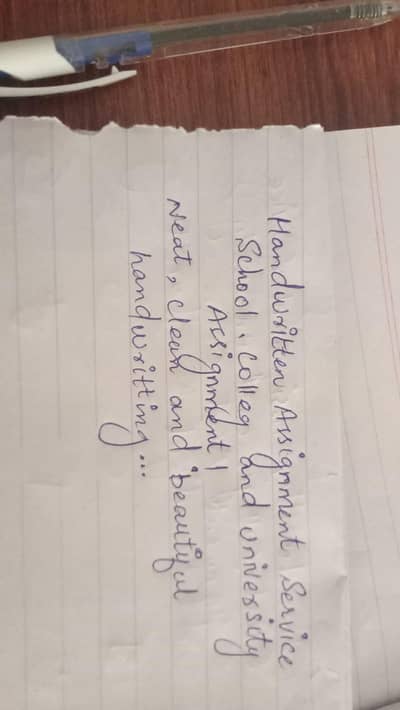 Handwritten Assignment Service
School, colleg and university
Assignment!
Neat, clean and beautiful
handwritting...